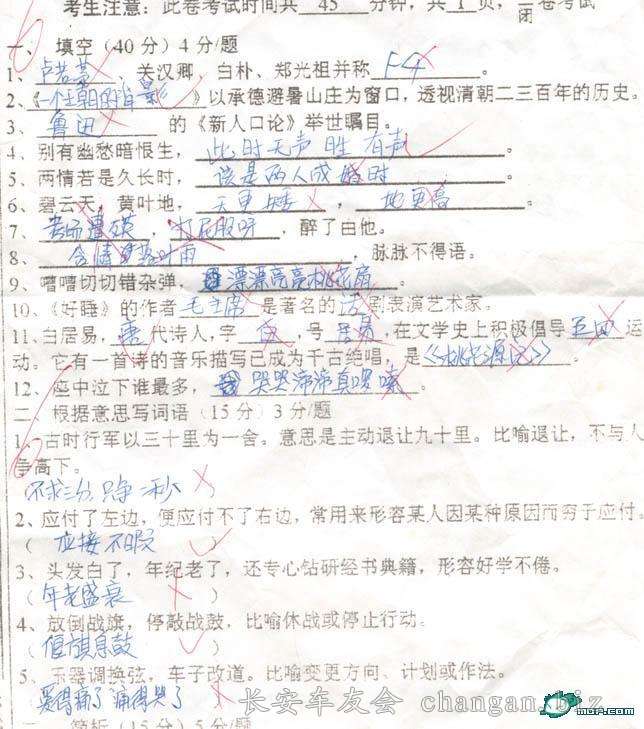 考生注意：此卷考试时间共 45 分钟，共 1 页，闭卷考试
一、填空（40分）4分/题
1、卢若藁、关汉卿、白朴、郑光祖并称 F4 。
2、《一个王朝的背影》以承德避暑山庄为窗口，透视清朝二三百年的历史。
3、鲁迅 的《新人口论》举世瞩目。
4、别有幽愁暗恨生，此时无声胜有声 。
5、两情若是久长时，该是两人成婚时 。
6、碧云天，黄叶地，天更矮 ，地更高 。
7、考场遭殃 ，打屁股呀 ，醉了由他。
8、含情 叶雨 ，脉脉不得语。
9、嘈嘈切切错杂弹，漂漂亮亮桃花扇 。
10、《好睡》的作者毛主席 是著名的 话 剧表演艺术家。
11、白居易，唐 代诗人，字 白 ，号 居易 ，在文学史上积极倡导 五四 运
动。它有一首诗的音乐描写已成为千古绝唱，是《桃花源记》 。
12、座中泣下谁最多，哭哭啼啼真啰嗦 。
二 根据意思写词语（15分）3分/题
1、古时行军以三十里为一舍。意思是主动退让九十里。比喻退让，不与人
争高下。
（不求三分，只争二秒 ）
2、应付了左边，便应付不了右边，常用来形容某人因某种原因而穷于应付。
（ 应接不暇 ）
3、头发白了，年纪老了，还专心钻研经书典籍，形容好学不倦。
（年老盛衰 ）
4、放倒战旗，停敲战鼓，比喻休战或停止行动。
（偃旗息鼓 ）
5、乐器调换弦，车子改道。比喻变更方向、计划或作法。
哭得痛了 痛得哭了
三 简析（15分）5分/题
长安车友会 changan.biz
mop.com